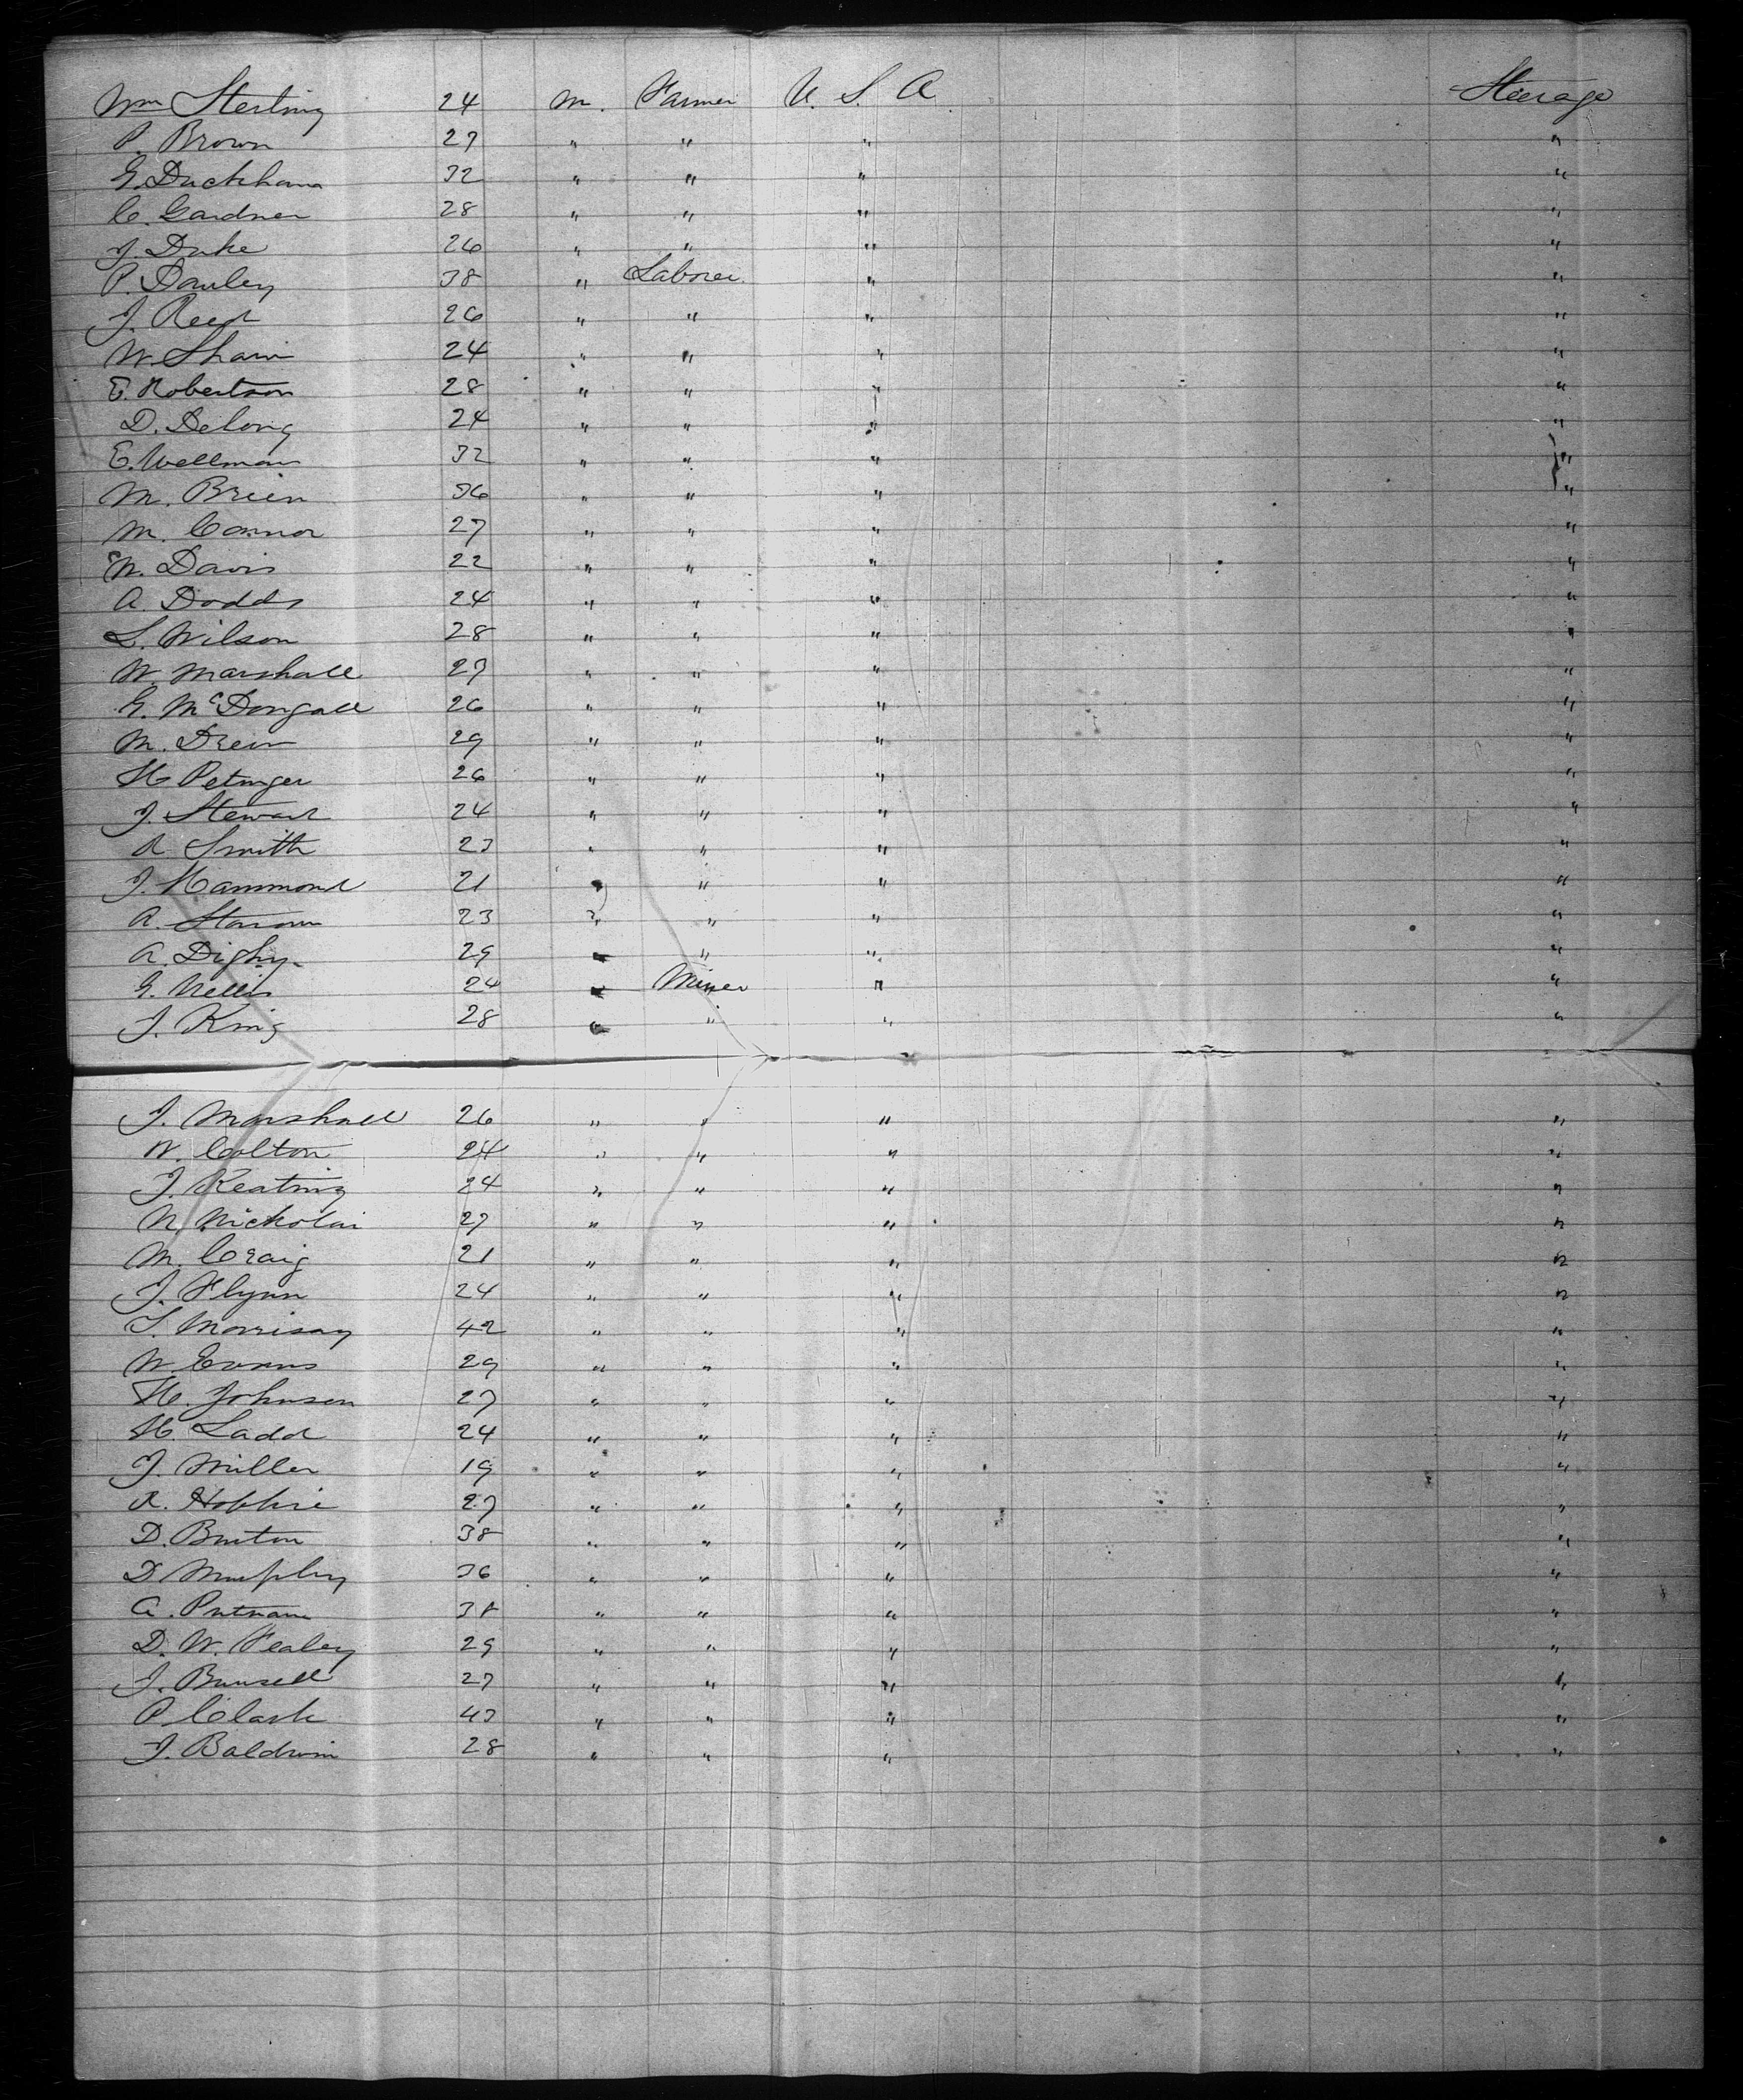 Wm Sterling 24 m. Farmer U. S. A Steerage
P. Brown 27 " " " "
G. Duckham 32 " " " "
C. Gardner 28 " " " "
J. Duke 26 " " " "
P. Dauley 38 " Laborer " "
J. Reed 26 " " " "
W. Shaw 24 " " " "
E. Robertson 28 " " " "
D. Delong 24 " " " "
E. Wellman 32 " " " "
M. Brien 36 " " " "
M. Connor 27 " " " "
W. Davis 22 " " " "
A. Dodds 24 " " " "
L. Wilson 28 " " " "
W. Marshall 27 " " " "
G. McDongall 26 " " " "
M. Drew 29 " " " "
H Petinger 26 " " " "
J. Stewart 24 " " " "
A Smith 23 " " " "
J. Hammond 21 " " " "
A. 23 " " " "
A. Digby 29 " " " "
G. Nellis 24 " Miner " "
J. King 28 " " " "
J. Marshall 26 " " " "
W. Colton 24 " " " "
J. Keating 24 " " " "
N. Nickolai 27 " " " "
M. Craig 21 " " " "
J. Flynn 24 " " " "
S. Morrisay 42 " " " "
W Evans 29 " " " "
H. Johnson 27 " " " "
H. Ladd 24 " " " "
J. Miller 19 " " " "
R. 27 " " " "
D. Burton 38 " " " "
D Murphy 36 " " " "
A. Putnam 38 " " " "
D. W. Fealey 29 " " " "
J. Bunsell 27 " " " "
P. Clark 43 " " " "
J. Baldwin 28 " " " "